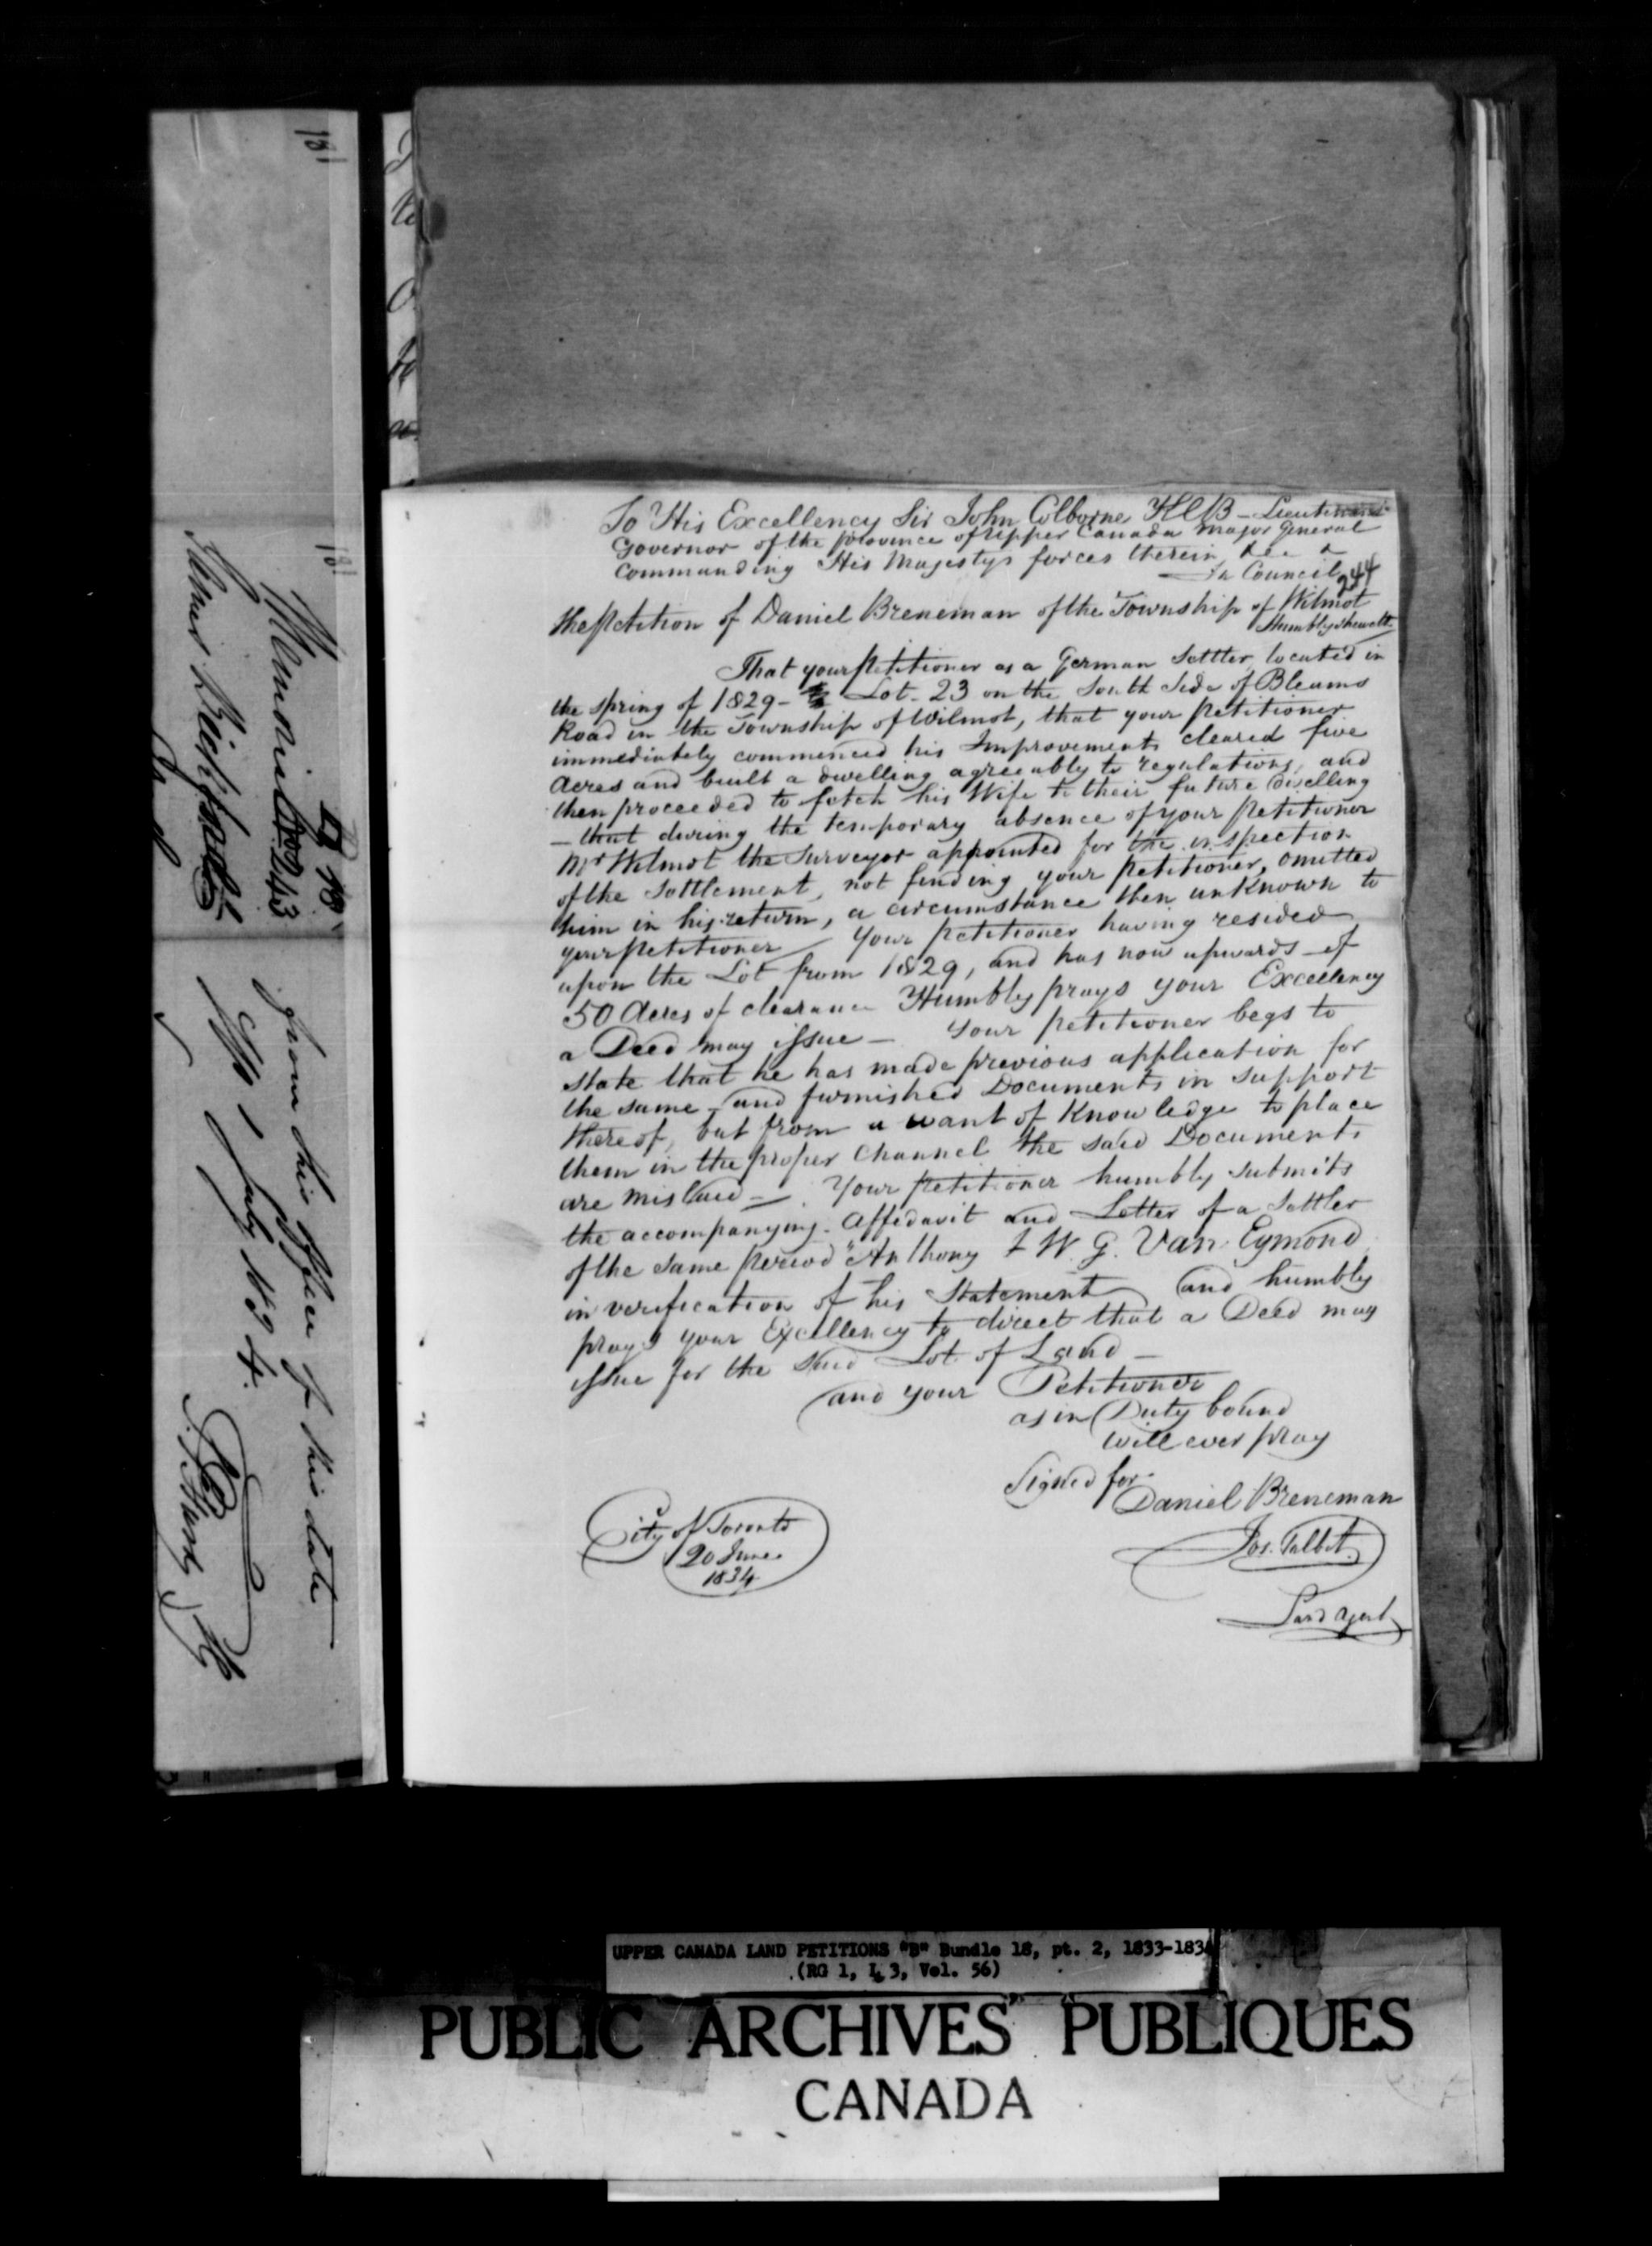 To His Excellency Sir John Colborne KCB - Lieutenant
Governor of the province of Upper Canada Major General
Commanding His Majestys forces therein &c &
In Council
244
The Petition of Daniel Breneman of the Township of Wilmot
Humbly Sheweth
That your Petitioner as a German Settler, located in
the spring of 1829 - Lot - 23 on the South Side of Bleams
Road in the Township of Wilmot, that your Petitioner
immediately commenced his Improvements cleared five
Acres and built a dwelling agreeably to regulations, and
then proceeded to fetch his Wife to their future dwelling
- that during the temporary absence of your Petitioner
Mr Wilmot the Surveyor appointed for the inspection
of the Settlement, not finding your Petitioner, omitted
him in his return, a circumstance then unknown to
your Petitioner - Your Petitioner having resided
upon the Lot from 1829, and has now upwards of
50 Acres of clearance Humbly prays your Excellency
a Deed may issue - Your Petitioner begs to
state that he has made previous application for
the same - and furnished Documents in support
thereof, but from a want of Knowledge to place
them in the proper Channel the said Documents
are mislaid - Your Petitioner humbly submits
the accompanying Affidavit and Letter of a Settler
of the same period Anthony J W. G. Van Egmond
in verification of his Statement and humbly
prays your Excellency to direct that a Deed may
issue for the said Lot of Land -
and your Petitioner
as in Duty bound
will ever pray
Signed for
Daniel Breneman
Jos. Talbot
Land Agent
City of Toronto
20 June
1834
181
181
No 243
from this office of this date
1 July 1834.
UPPER CANADA LAND PETITIONS "B" Bundle 18, pt. 2, 1833-1834
(RG 1, L 3, Vol. 56)
PUBLIC ARCHIVES PUBLIQUES
CANADA